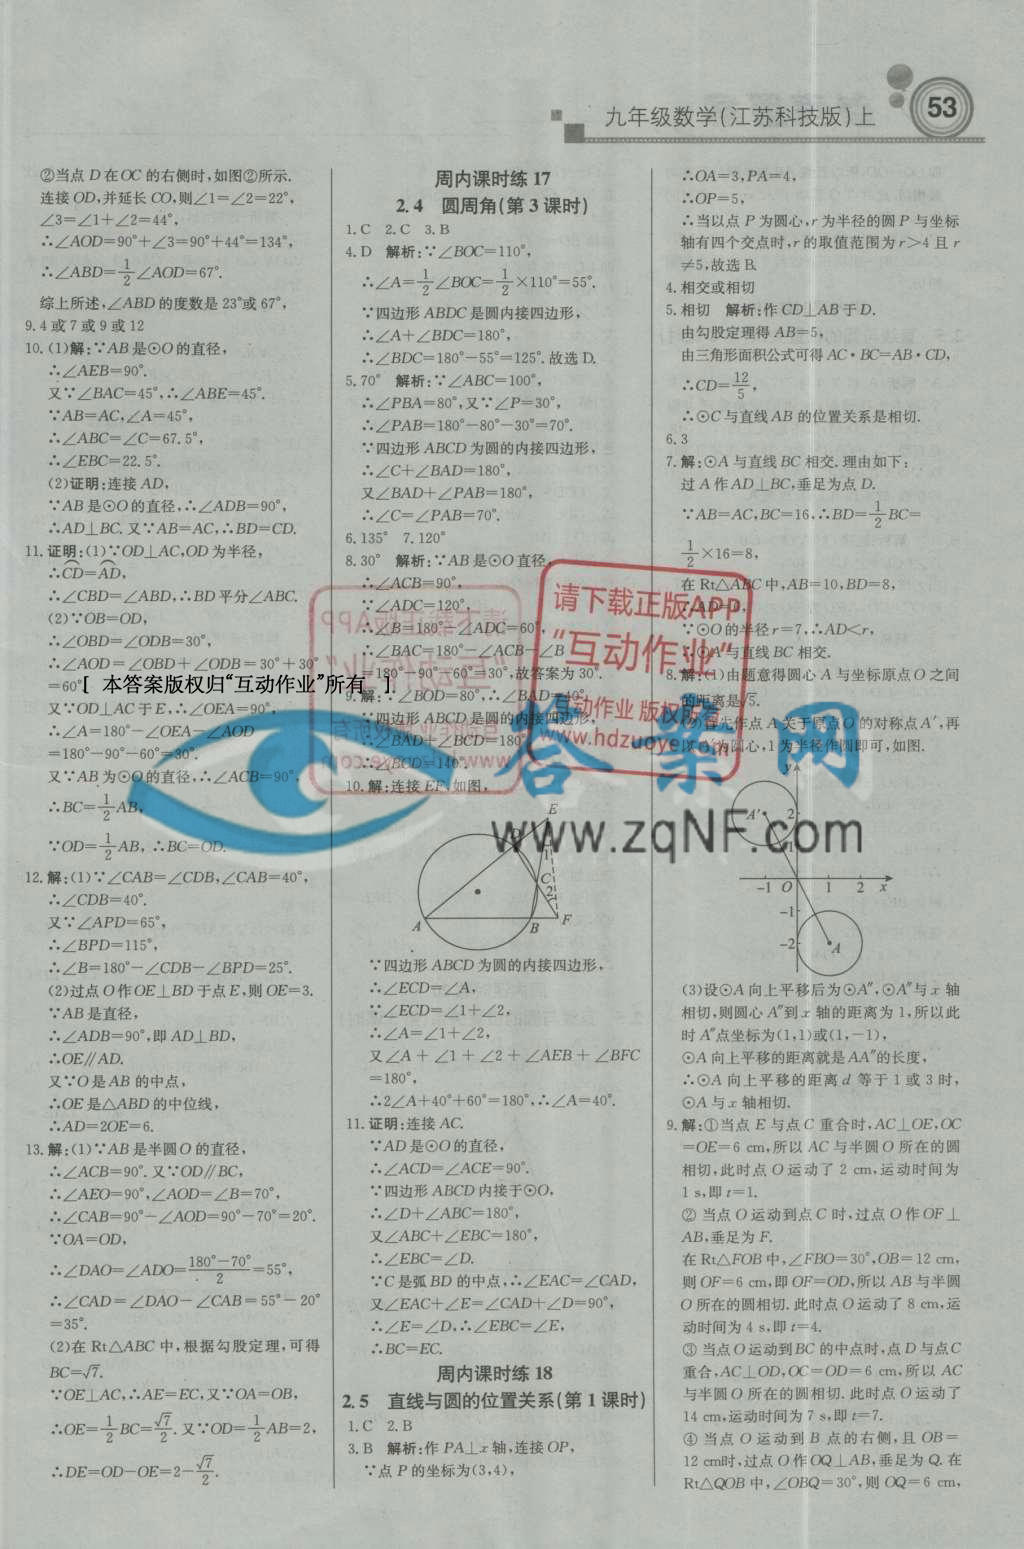 九年级数学(江苏科技版)上
53
②当点 D 在OC 的右侧时,如图②所示.
连接 OD,并延长 CO,则∠1=∠2=22°,
∠3=∠1+∠2=44°,
∴∠AOD=90°+∠3=90°+44°=134°,
∴∠ABD=1/2∠AOD=67°.
综上所述,∠ABD 的度数是 23°或 67°,
9. 4 或 7 或 9 或 12
10. (1)解:∵AB 是⊙O 的直径,
∴∠AEB=90°.
又∵∠BAC=45°,∴∠ABE=45°.
∵AB=AC,∠A=45°,
∴∠ABC=∠C=67.5°,
∴∠EBC=22.5°.
(2)证明:连接 AD,
∵AB 是⊙O 的直径,∴∠ADB=90°,
∴AD⊥BC. 又∵AB=AC,∴BD=CD.
11. 证明:(1)∵OD⊥AC,OD 为半径,
∴CD=AD,
∴∠CBD=∠ABD,∴BD 平分∠ABC.
(2)∵OB=OD,
∴∠OBD=∠ODB=30°,
∴∠AOD=∠OBD+∠ODB=30°+30°
=60°
[ 本答案版权归“互动作业”所有 ]
又∵OD⊥AC 于 E,∴∠OEA=90°,
∴∠A=180°-∠OEA-∠AOD
=180°-90°-60°=30°.
又∵AB 为⊙O 的直径,∴∠ACB=90°,
∴BC=1/2AB,
∵OD=1/2AB, ∴BC=OD.
12. 解:(1)∵∠CAB=∠CDB,∠CAB=40°,
∴∠CDB=40°.
又∵∠APD=65°,
∴∠BPD=115°,
∴∠B=180°-∠CDB-∠BPD=25°.
(2)过点 O 作 OE⊥BD 于点 E,则 OE=3.
∵AB 是直径,
∴∠ADB=90°,即 AD⊥BD,
∴OE∥AD.
又∵O 是 AB 的中点,
∴OE 是△ABD 的中位线,
∴AD=2OE=6.
13. 解:(1)∵AB 是半圆 O 的直径,
∴∠ACB=90°. 又∵OD∥BC,
∴∠AEO=90°,∠AOD=∠B=70°,
∴∠CAB=90°-∠AOD=90°-70°=20°.
∵OA=OD,
∴∠DAO=∠ADO=(180°-70°)/2=55°,
∴∠CAD=∠DAO-∠CAB=55°-20°
=35°.
(2)在 Rt△ABC 中,根据勾股定理,可得
BC=√7.
∵OE⊥AC,∴AE=EC,又∵OA=OB,
∴OE=1/2BC=√7/2. 又∵OD=1/2AB=2,
∴DE=OD-OE=2-√7/2.
周内课时练 17
2.4 圆周角(第 3 课时)
1. C 2. C 3. B
4. D 解析:∵∠BOC=110°,
∴∠A=1/2∠BOC=1/2×110°=55°.
∵四边形 ABDC 是圆内接四边形,
∴∠A+∠BDC=180°,
∴∠BDC=180°-55°=125°. 故选 D.
5. 70° 解析:∵∠ABC=100°,
∴∠PBA=80°,又∵∠P=30°,
∴∠PAB=180°-80°-30°=70°.
∵四边形 ABCD 为圆的内接四边形,
∴∠C+∠BAD=180°,
又∠BAD+∠PAB=180°,
∴∠C=∠PAB=70°.
6. 135° 7. 120°
8. 30° 解析:∵AB 是⊙O 直径,
∴∠ACB=90°,
∵∠ADC=120°,
∴∠B=180°-∠ADC=60°,
∴∠BAC=180°-∠ACB-∠B
=180°-90°-60°=30°,故答案为 30°.
9. 解:∵∠BOD=80°,∴∠BAD=40°,
∵四边形 ABCD 是圆的内接四边形,
∴∠BAD+∠BCD=180°
∴∠BCD=140°.
10. 解:连接 EF,如图,
E
D
1
C
2
A
B
F
∵四边形 ABCD 为圆的内接四边形,
∴∠ECD=∠A,
∵∠ECD=∠1+∠2,
∴∠A=∠1+∠2,
又∠A+∠1+∠2+∠AEB+∠BFC
=180°,
∴2∠A+40°+60°=180°,∴∠A=40°.
11. 证明:连接 AC.
∵AD 是⊙O 的直径,
∴∠ACD=∠ACE=90°.
∵四边形 ABCD 内接于⊙O,
∴∠D+∠ABC=180°,
又∠ABC+∠EBC=180°,
∴∠EBC=∠D.
∵C 是弧 BD 的中点,∴∠EAC=∠CAD,
又∠EAC+∠E=∠CAD+∠D=90°,
∴∠E=∠D,∴∠EBC=∠E,
∴BC=EC.
周内课时练 18
2.5 直线与圆的位置关系(第 1 课时)
1. C 2. B
3. B 解析:作 PA⊥x 轴,连接 OP,
∵点 P 的坐标为(3,4),
∴OA=3,PA=4,
∴OP=5,
∴当以点 P 为圆心,r 为半径的圆 P 与坐标
轴有四个交点时,r 的取值范围为 r>4 且 r
≠5,故选 B.
4. 相交或相切
5. 相切 解析:作 CD⊥AB 于 D.
由勾股定理得 AB=5,
由三角形面积公式可得 AC·BC=AB·CD,
∴CD=12/5,
∴⊙C 与直线 AB 的位置关系是相切.
6. 3
7. 解:⊙A 与直线 BC 相交. 理由如下:
过 A 作 AD⊥BC,垂足为点 D.
∵AB=AC,BC=16,∴BD=1/2BC=
1/2×16=8,
在 Rt△ABC 中,AB=10,BD=8,
∴AD=6,
∵⊙O 的半径 r=7,∴AD<r,
∴⊙A 与直线 BC 相交.
8. 解:(1)由题意得圆心 A 与坐标原点 O 之间
的距离是√5.
首先作点 A 关于原点 O 的对称点 A′,再
以 A′为圆心,1 为半径作圆即可,如图.
y
A′
2
1
-1 O 1 2 x
-1
-2
A
(3)设⊙A 向上平移后为⊙A″,⊙A″与 x 轴
相切,则圆心 A″到 x 轴的距离为 1,所以此
时 A″点坐标为(1,1)或(1,-1),
⊙A 向上平移的距离就是AA″的长度,
∴⊙A 向上平移的距离 d 等于 1 或 3 时,
⊙A 与 x 轴相切.
9. 解:①当点 E 与点 C 重合时,AC⊥OE,OC
=OE=6 cm,所以 AC 与半圆 O 所在的圆
相切,此时点 O 运动了 2 cm,运动时间为
1 s,即 t=1.
② 当点 O 运动到点 C 时,过点 O 作 OF⊥
AB,垂足为 F.
在 Rt△FOB 中,∠FBO=30°,OB=12 cm,
则 OF=6 cm,即 OF=OD,所以 AB 与半圆
O 所在的圆相切. 此时点 O 运动了 8 cm,运
动时间为 4 s,即 t=4.
③ 当点 O 运动到BC 的中点时,点 D 与点C
重合,AC⊥OD,OC=OD=6 cm,所以 AC
与半圆 O 所在的圆相切. 此时点 O 运动了
14 cm,运动时间为 7 s,即 t=7.
④ 当点 O 运动到 B 点的右侧,且 OB=
12 cm时,过点 O 作OQ⊥AB,垂足为 Q. 在
Rt△QOB 中,∠OBQ=30°,则 OQ=6 cm,
请下载正版APP
“互动作业”
互动作业 版权所有
www.hdzuoye.cn
答案网
www.zqNF.com